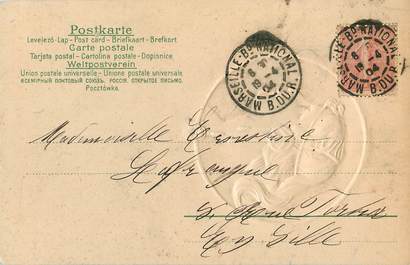 Postkarte
Levelező-Lap - Post card - Briefkaart - Brefkort
Carte postale
Tarjeta postal - Cartolina postale - Dopisnice
Weltpostverein
Union postale universelle - Unione postale universale
ВСЕМІРНЫЙ ПОЧТОВЫЙ СОЮЗЪ. РОССІЯ. ОТКРЫТОЕ ПИСЬМО.
Pocztówka.
MARSEILLE-Bd NATIONAL
B. DU R.
04
MARSEILLE-Bd NATIONAL
B. DU R.
04
Mademoiselle
Rue
En Ville